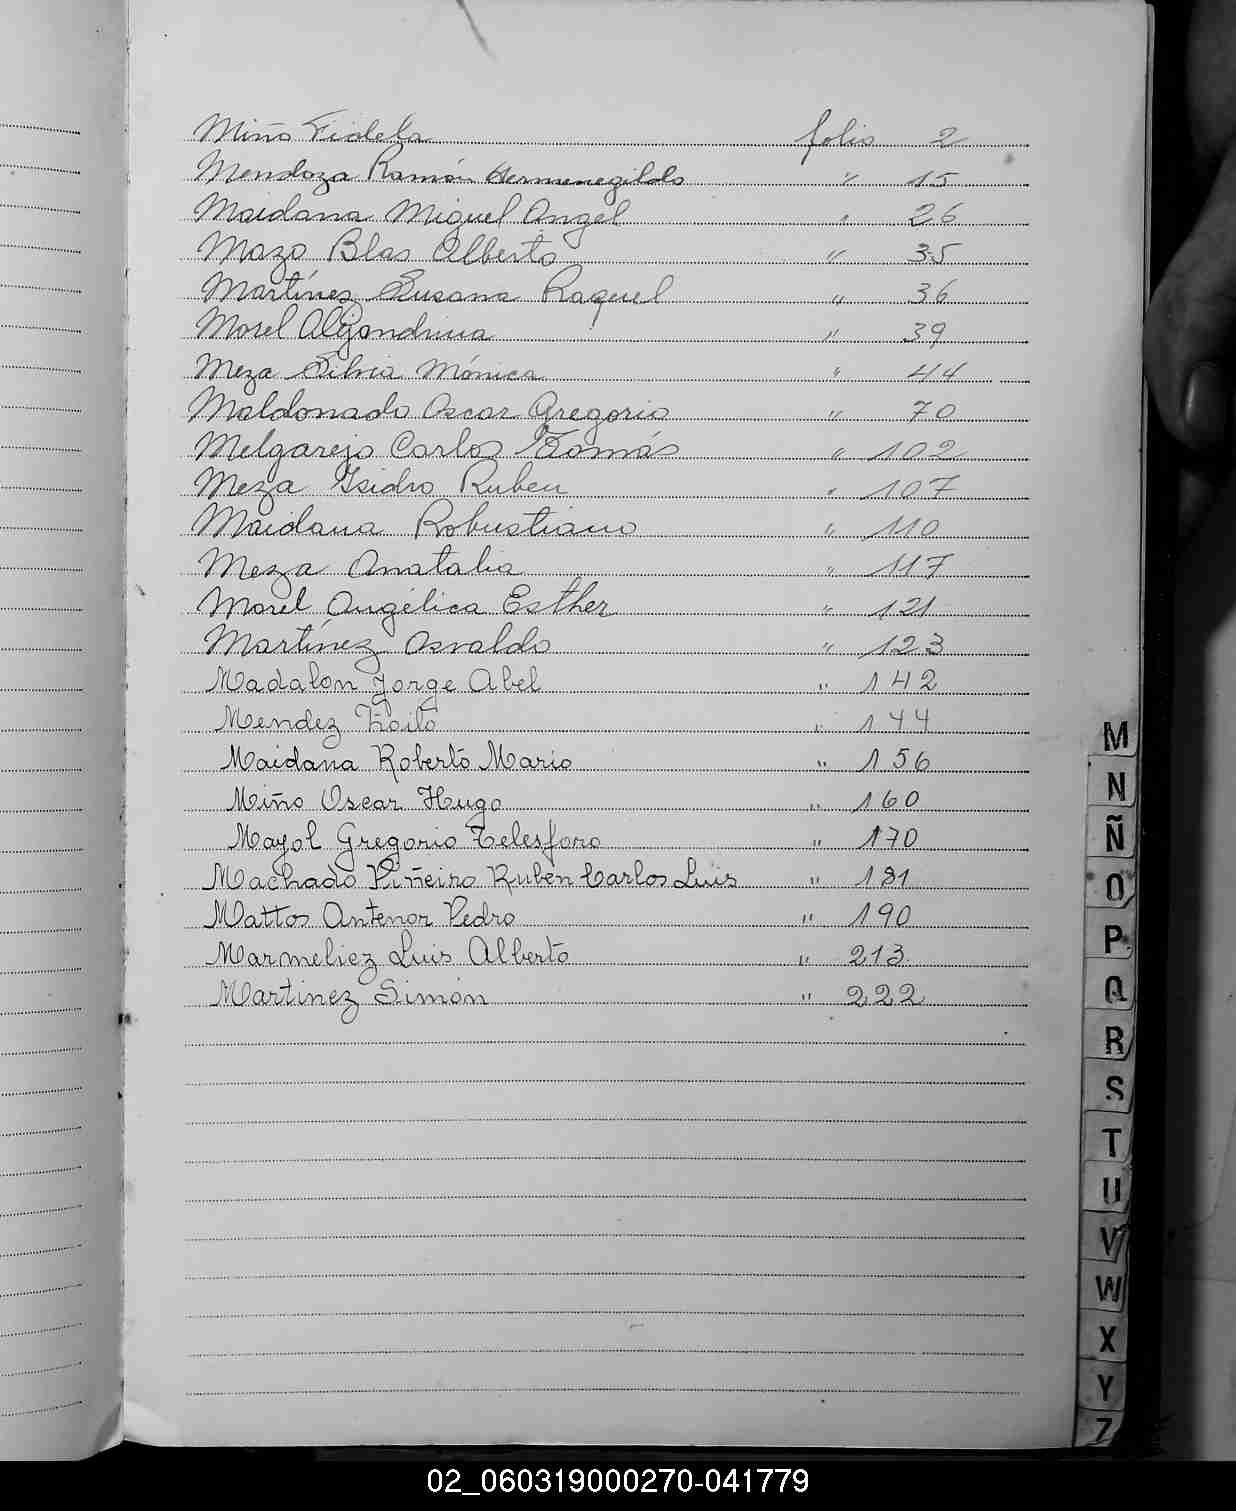 Miño Fidela folio 2
Mendoza Ramón Hermenegildo " 15
Maidana Miguel Angel " 26
Mazo Blas Alberto " 35
Martínez Susana Raquel " 36
Morel Alejandrina " 39
Meza Silvia Mónica " 44
Maldonado Oscar Gregorio " 70
Melgarejo Carlos Tomás " 102
Meza Isidro Ruben " 107
Maidana Robustiano " 110
Meza Anatalia " 117
Morel Angélica Esther " 121
Martínez Osvaldo " 123
Madalon Jorge Abel " 142
Mendez Froilo " 144
Maidana Roberto Mario " 156
Miño Oscar Hugo " 160
Mayol Gregorio Telesforo " 170
Machado Piñeiro Ruben Carlos Luis " 181
Mattos Antenor Pedro " 190
Marmeliez Luis Alberto " 213
Martinez Simón " 222
M
N
Ñ
O
P
Q
R
S
T
U
V
W
X
Y
Z
02_060319000270-041779